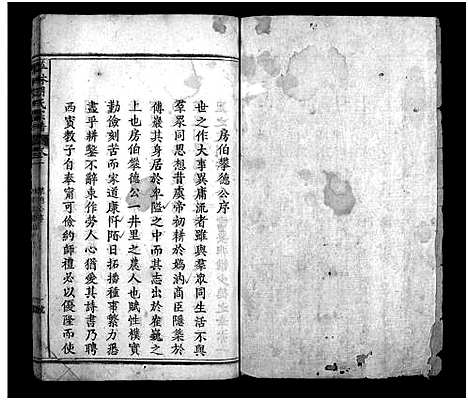 房伯攀德公序
世之作大事異庸流者雖與羣眾同生活不與
羣眾同思想昔虞帝初耕於歷山商臣隱築於
傅巖其身居於卑隘之中而其志出於崔巍之
上也房伯攀德公一井里之農人也賦性樸實
勤儉刻苦而家道康阡陌日拓播種事繁力悉
盡乎耕鑿不辭東作勞人心猶愛其詩書乃聘
西賓教子自奉甯可儉約師禮必以優隆而使